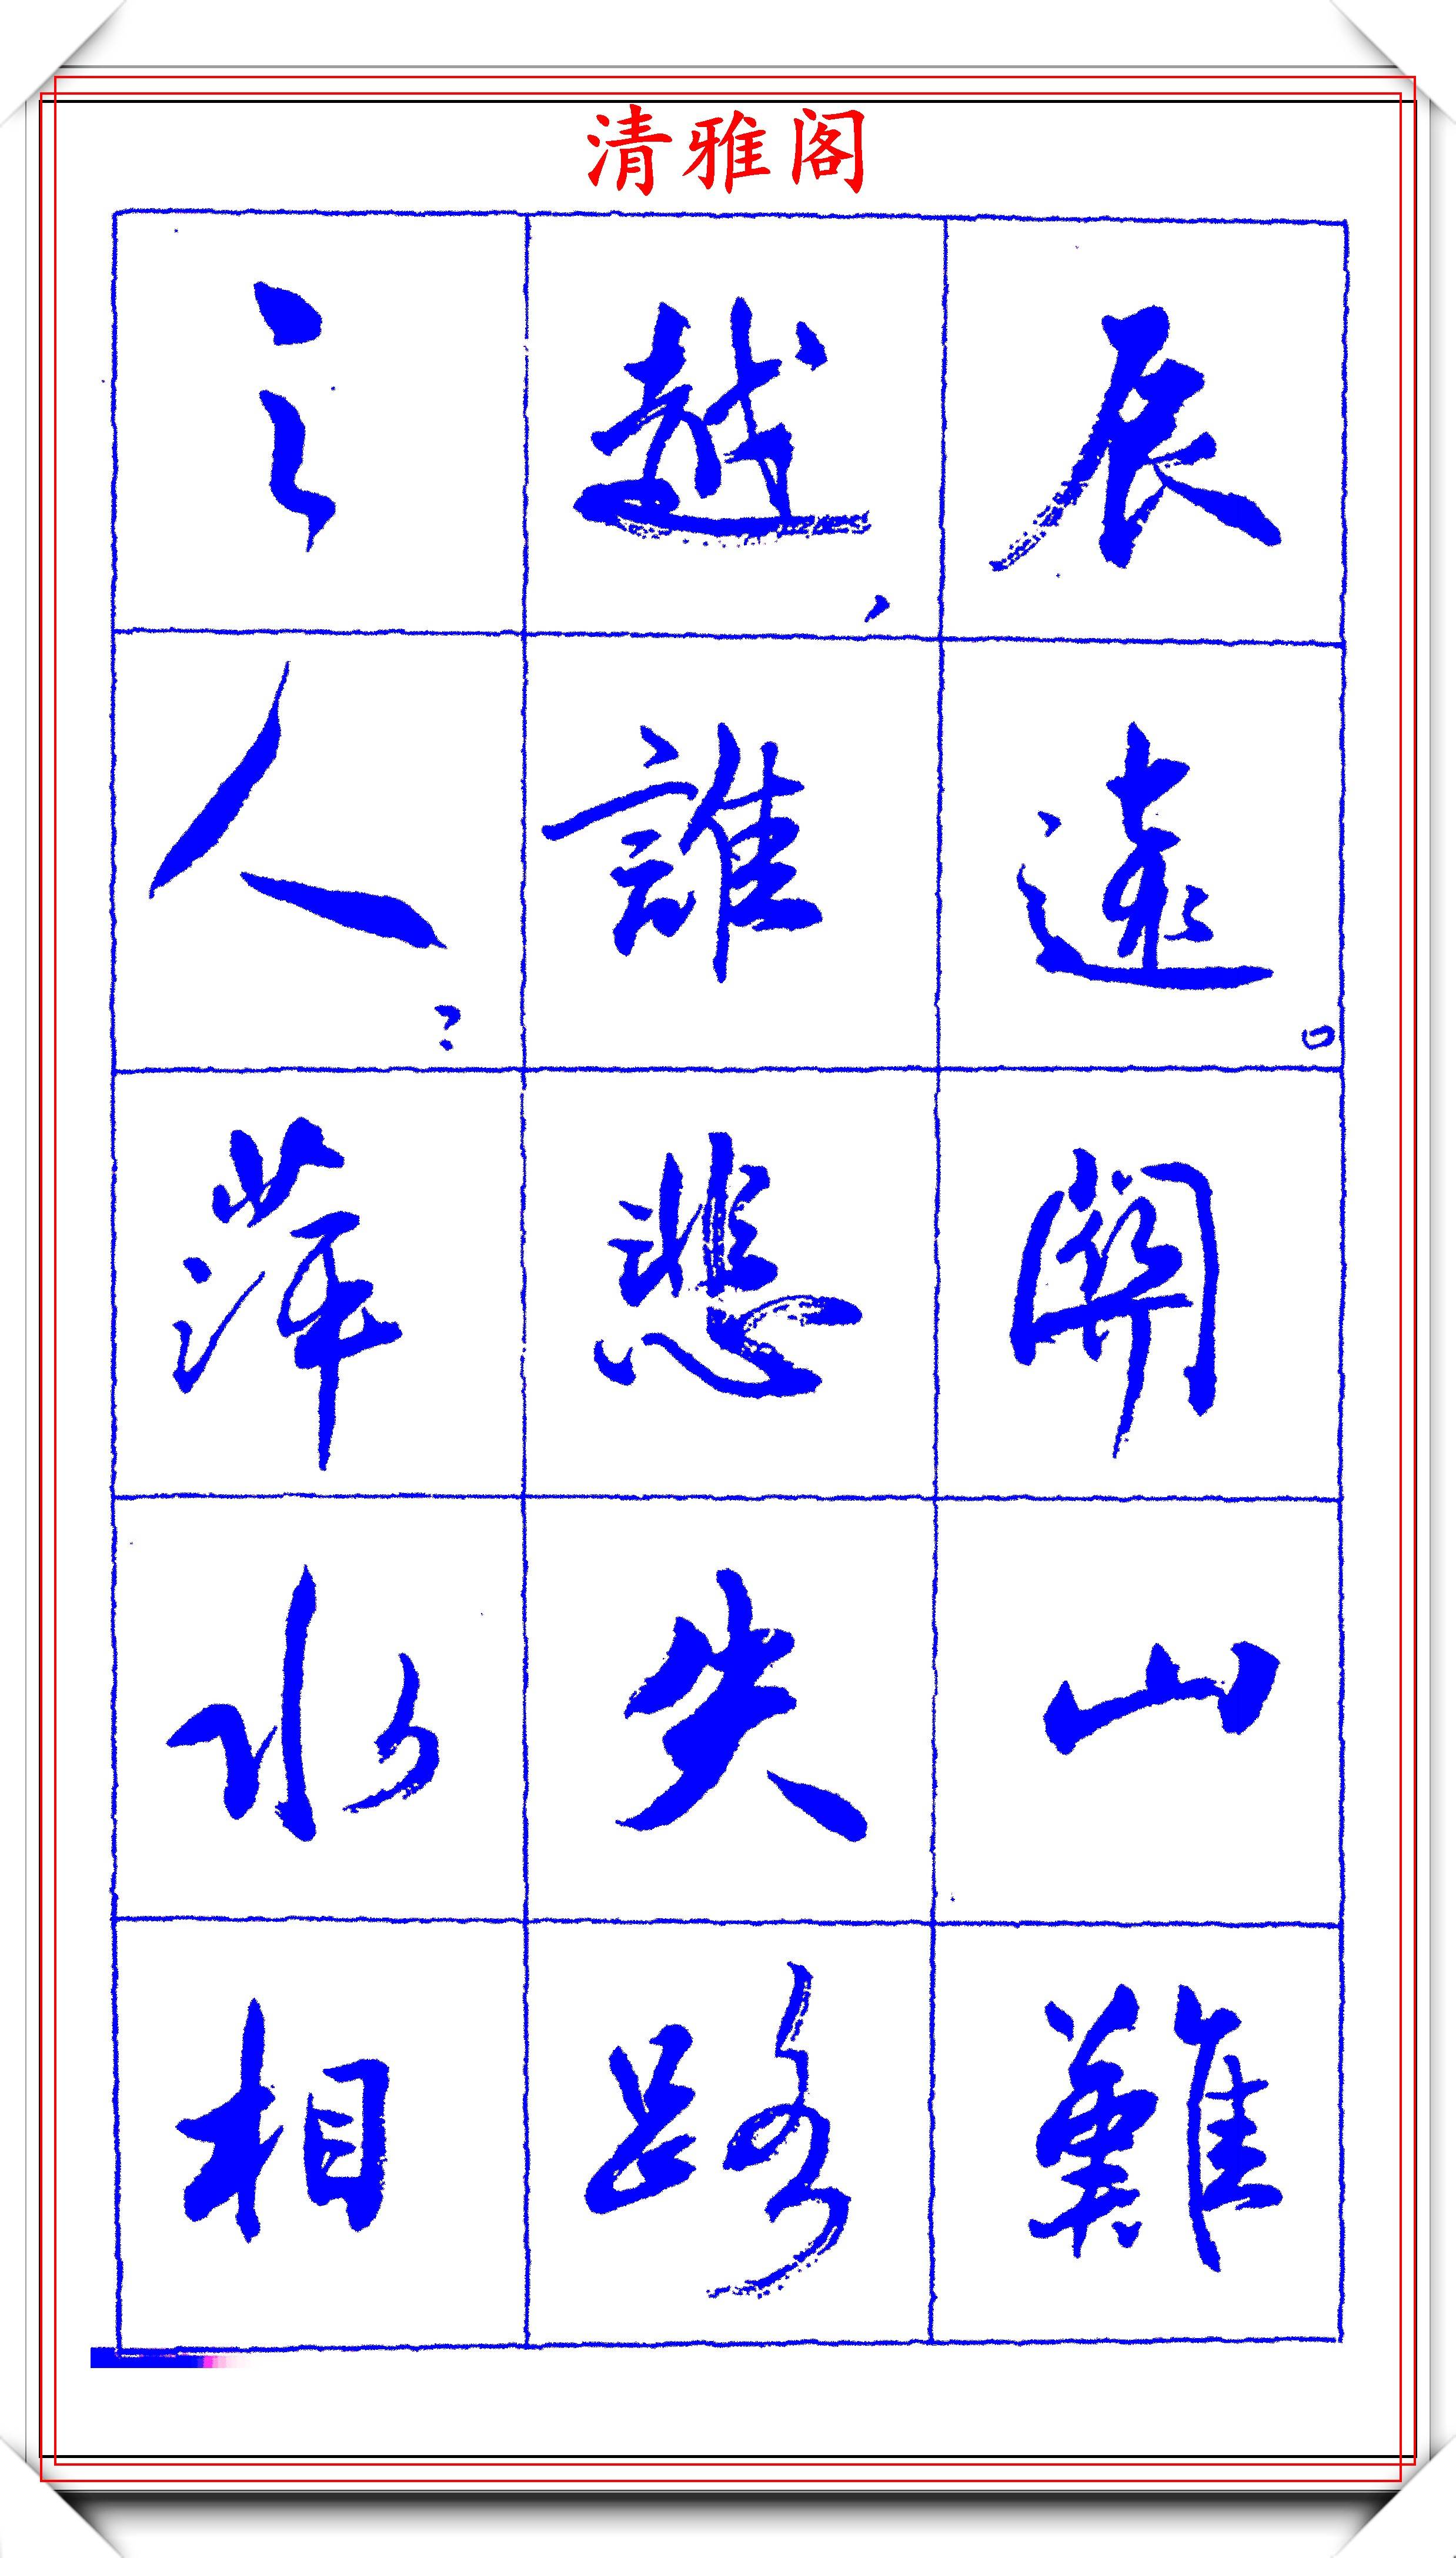 清雅阁
辰遠。關山難
越,誰悲失路
之人；萍水相